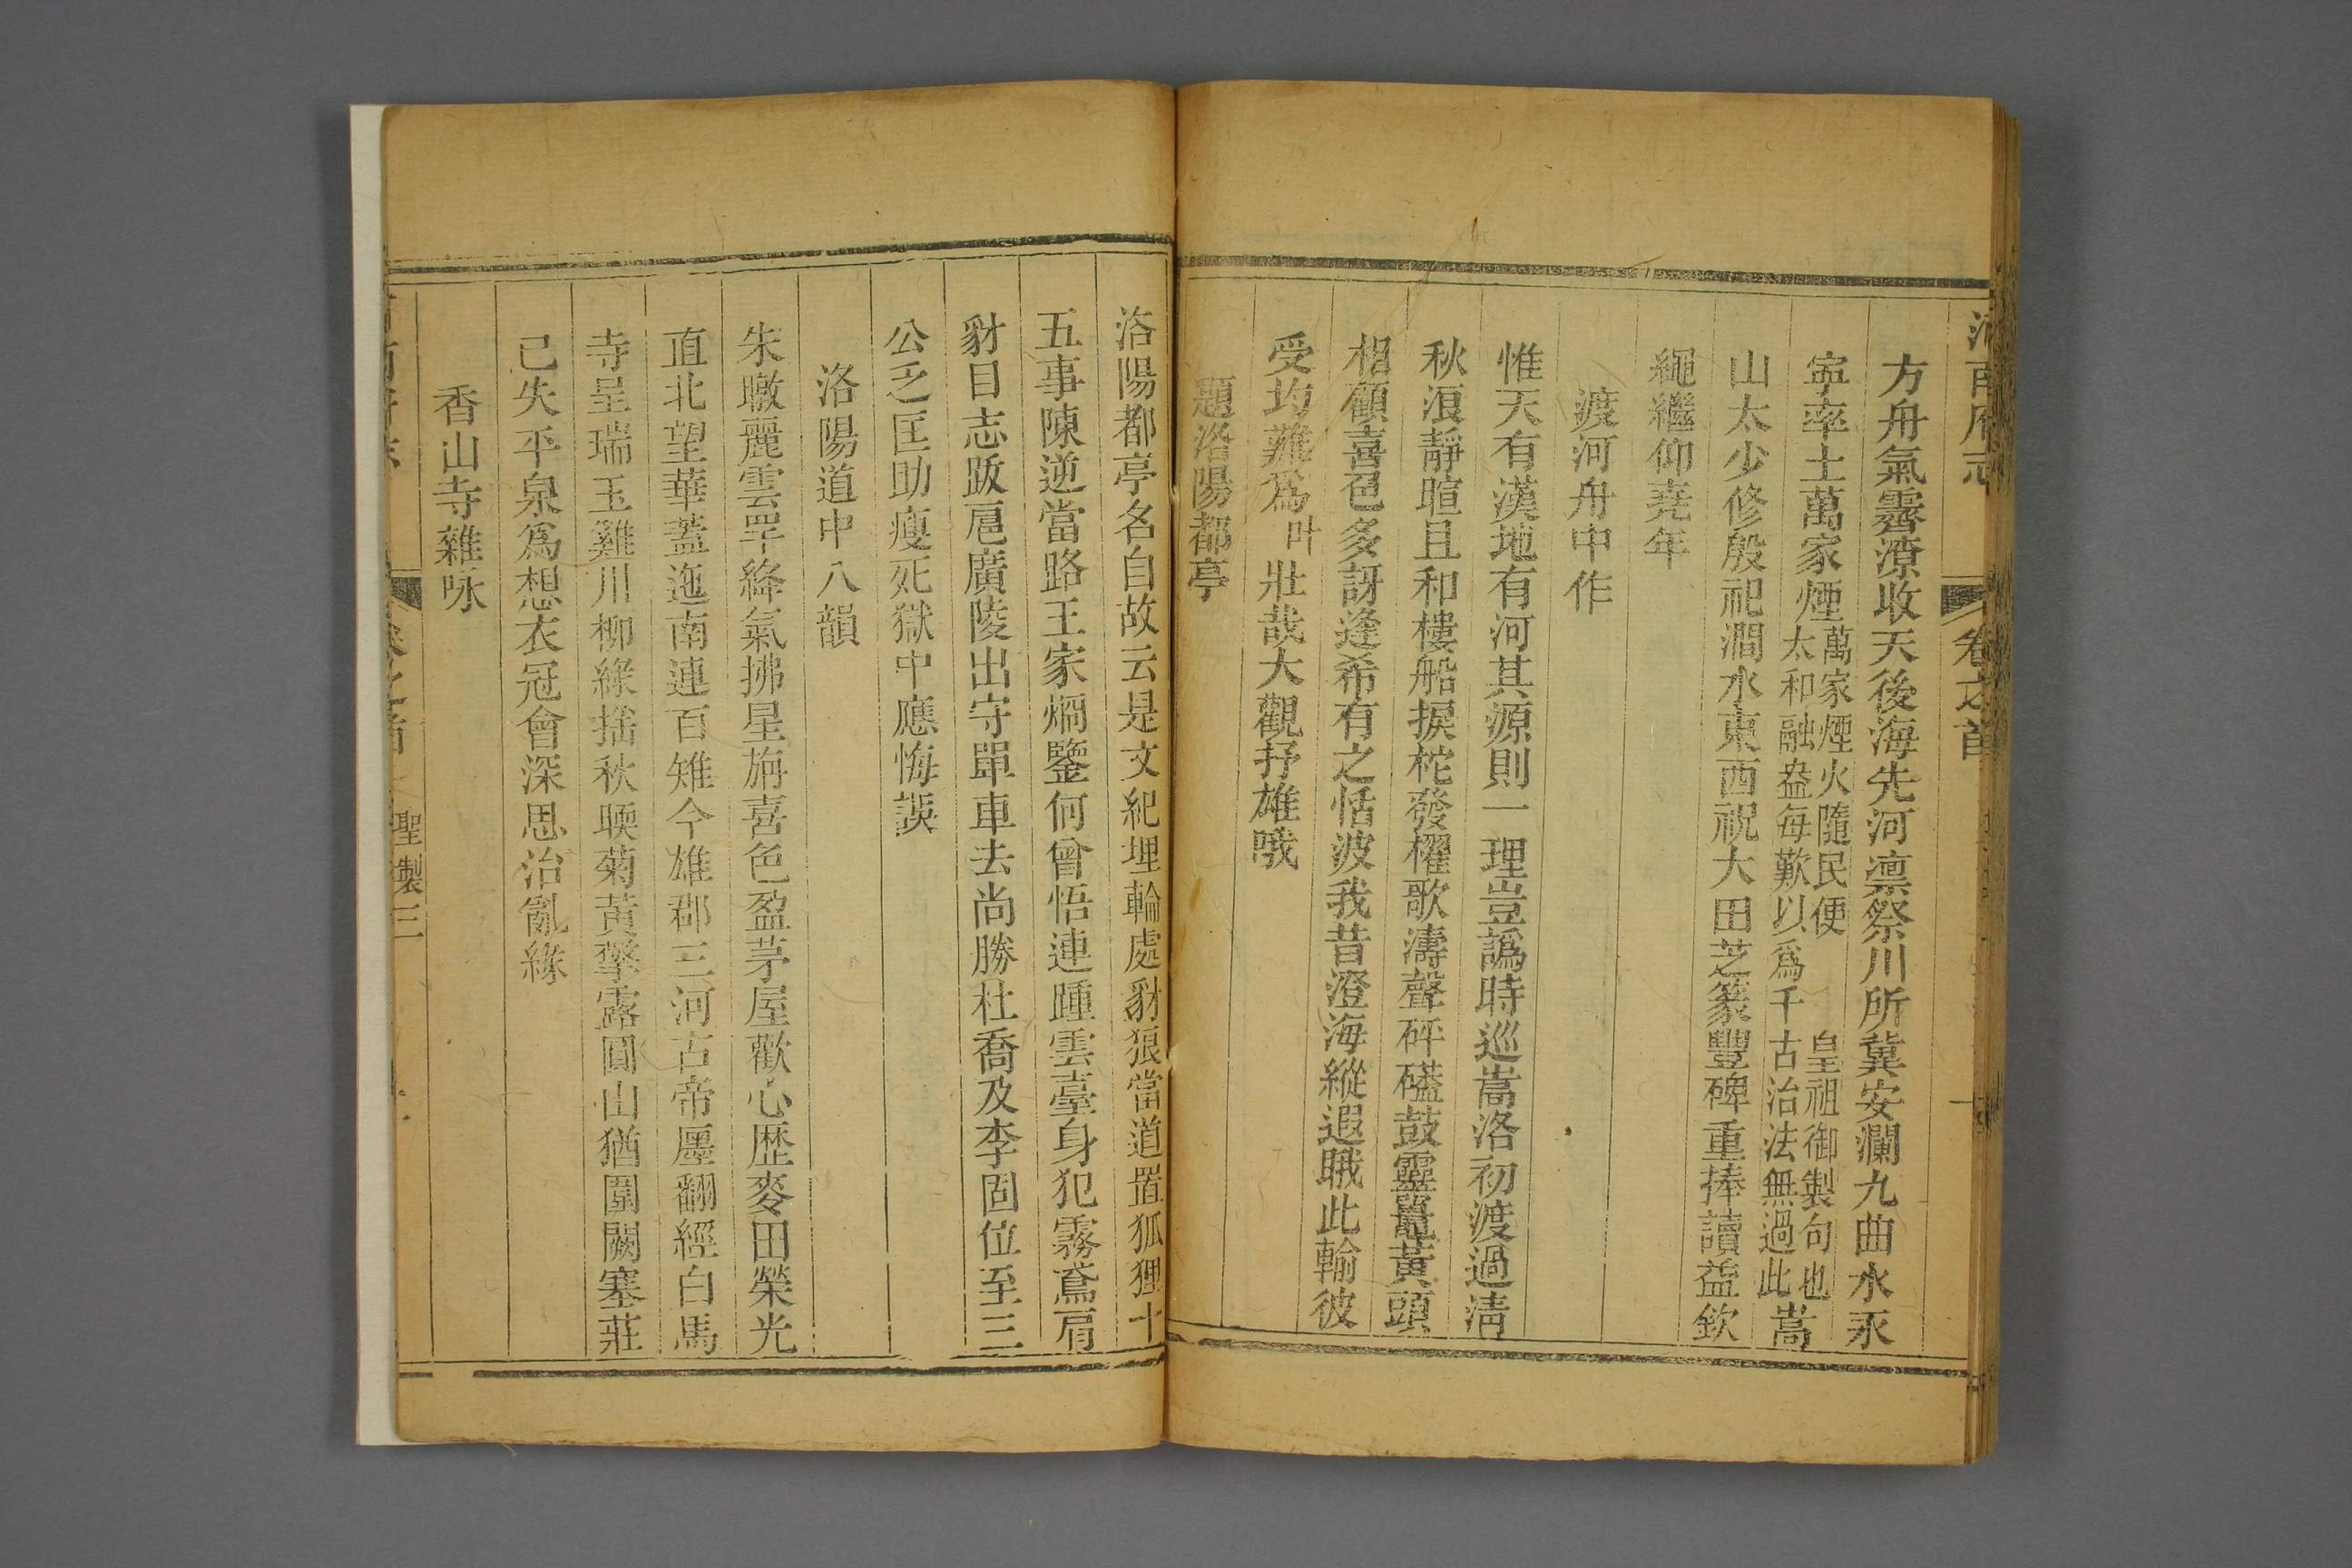 河南府志 卷之首
方舟氣霽潦收天後海先河凛祭川所冀安瀾九曲水永
寧率土萬家煙萬家煙火隨民便 皇祖御製句也
太和融盎每歎以爲千古治法無過此嵩
山太少修殷祀澗水東西祝大田芝篆豐碑重捧讀益欽
繩繼仰堯年
渡河舟中作
惟天有漢地有河其源則一理豈譌時巡嵩洛初渡過淸
秋浪靜暄且和樓船捩柁發櫂歌濤聲砰磕鼓靈鼉黃頭
相顧喜色多訝逢希有之恬波我昔澄海縱遐睋此輸彼
受均難爲叶壯哉大觀抒雄哦
題洛陽都亭
洛陽都亭名自故云是文紀埋輪處豺狼當道置狐狸十
五事陳逆當路王家烱鑒何曾悟連踵雲臺身犯霧鳶肩
豺目志跋扈廣陵出守單車去尚勝杜喬及李固位至三
公之匡助瘦死獄中應悔誤
洛陽道中八韻
朱暾麗雲罕絳氣拂星旃喜色盈茅屋歡心歷麥田榮光
直北望華蓋迤南連百雉今雄郡三河古帝廛翻經白馬
寺呈瑞玉雞川柳綠揺秋暎菊黃擎露圓山猶圍闕塞莊
已失平泉爲想衣冠會深思治亂緣
香山寺雜咏
聖製 三